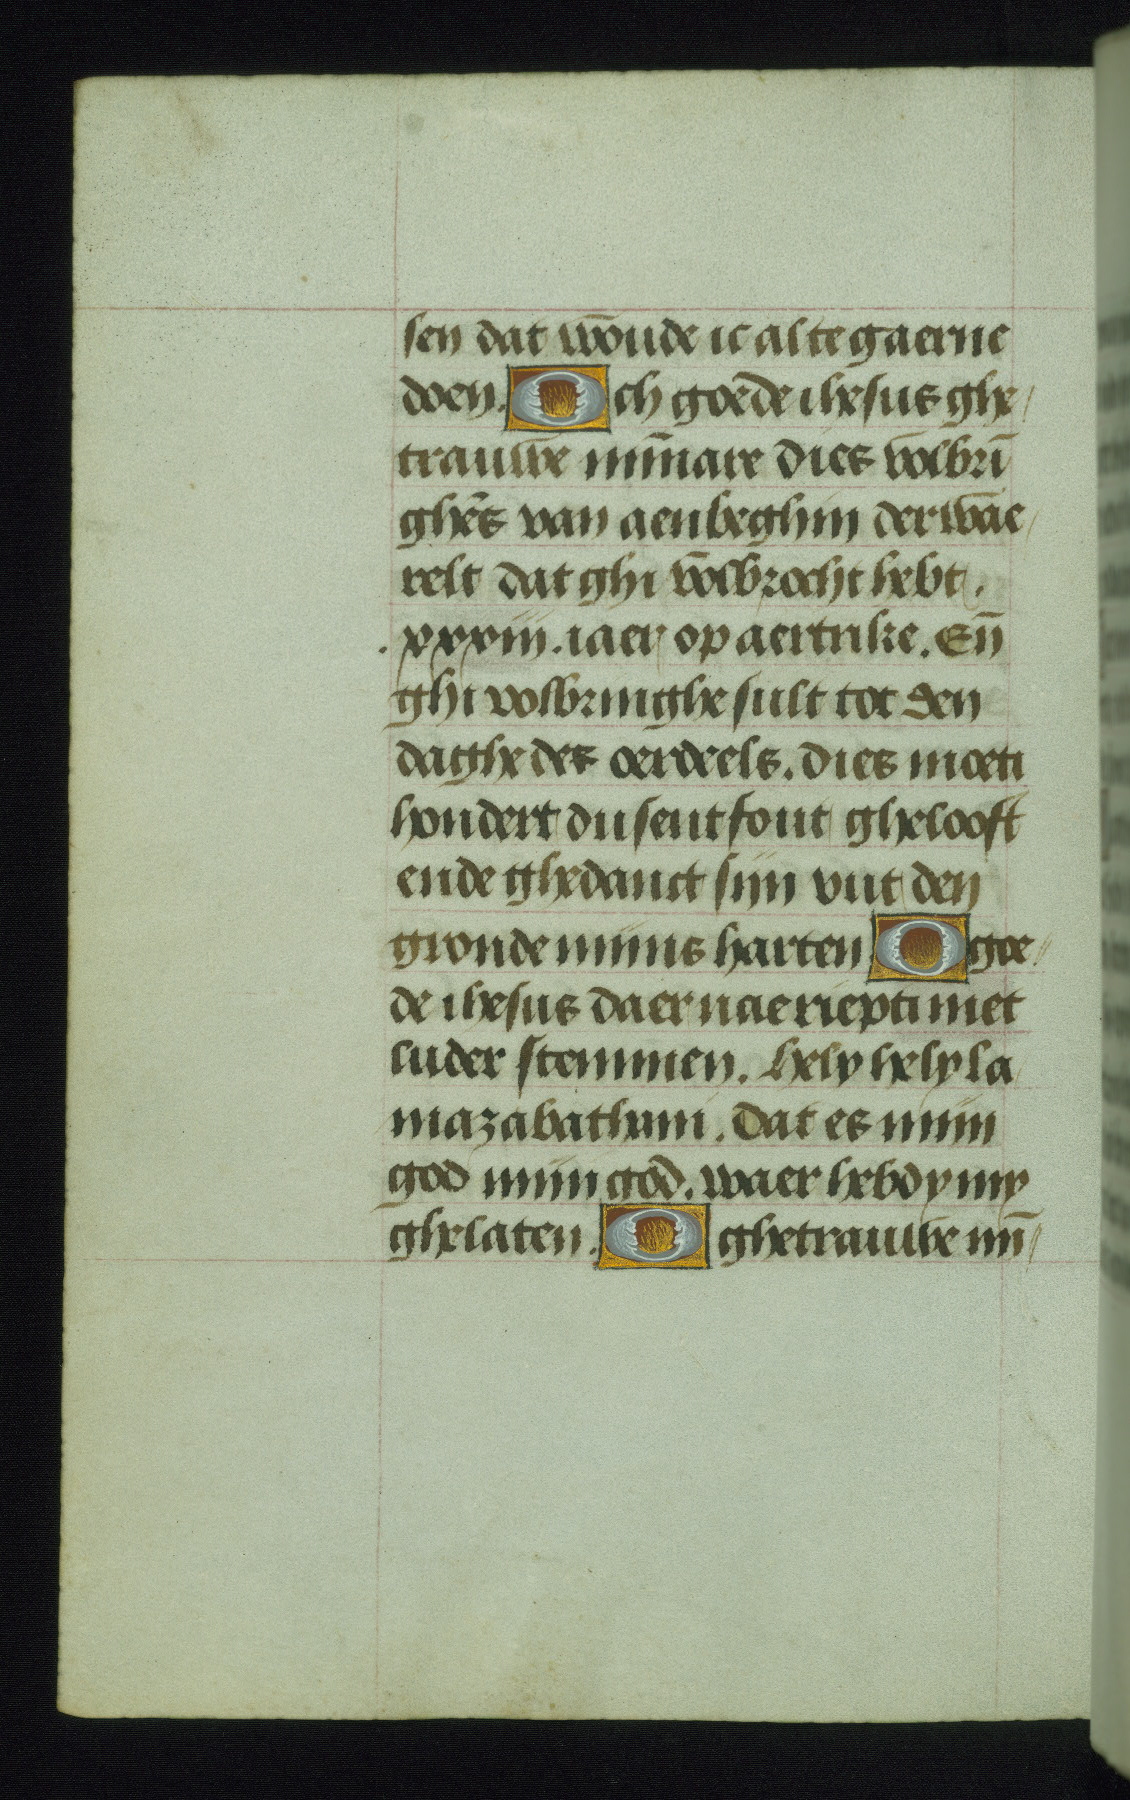 sen dat woude ic alte gaerne
doen. Och goede ihesus ghe/
trauwe miñare dies volbrī
ghēs van aenbeghin der wae/
relt dat ghi volbrocht hebt.
.xxxiij. iaer op aertrike. Eñ
ghi volbringhe sult tot den
daghe des oerdeels. Dies moeti
hondert dusent fout ghelooft
ende ghedanct sijn vut den
gronde mijns harten O goe/
de ihesus daer nae riepti met
luder stemmen. hely hely la
mazabathani. Dat es mijn
god mijn god. waer hebdy my
ghelaten. O ghetrauwe miñ/